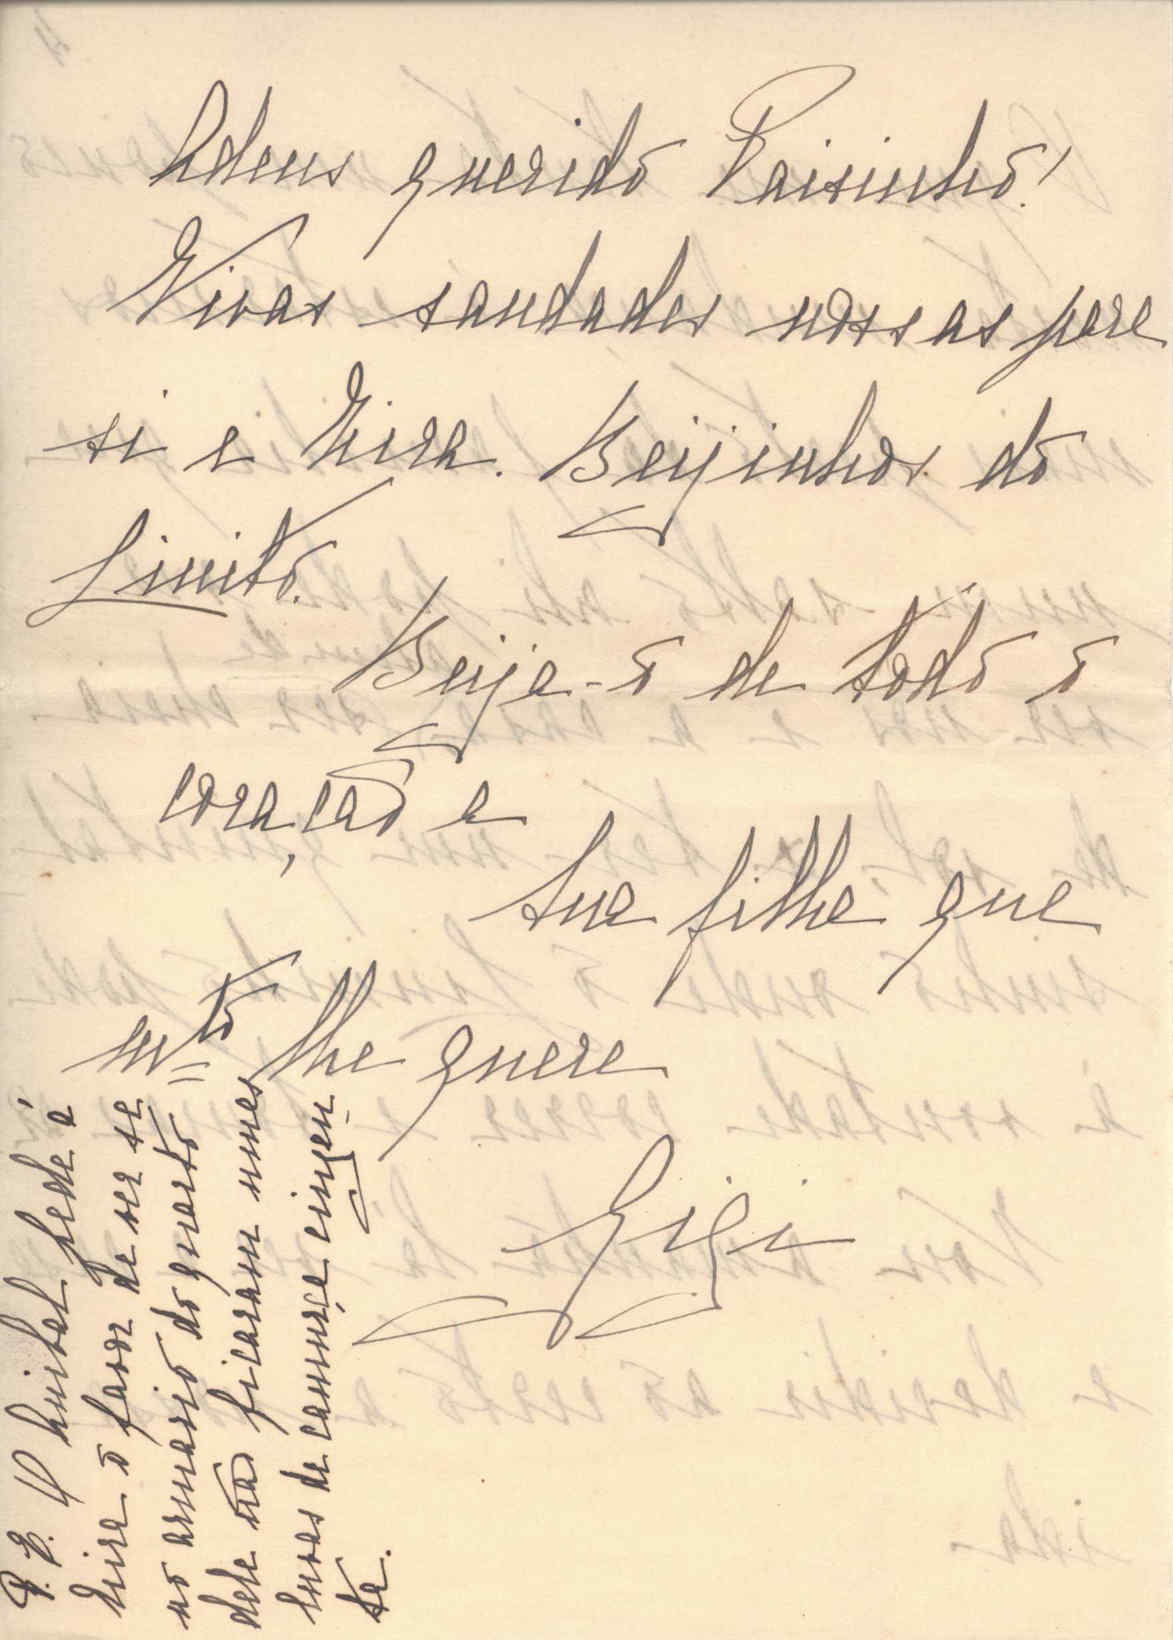 Adeus querido Paisinho!
Vivas saudades nossas para
si e Nira. Beijinhos do
Linito.
Beija-o de todo o
coração a
sua filha que
mto lhe quere
Gigi
P. S. O Anibal pede á
Nira o favor de ver se
no armario do quarto
dele não ficaram umas
luvas de camurça cinzen-
ta.